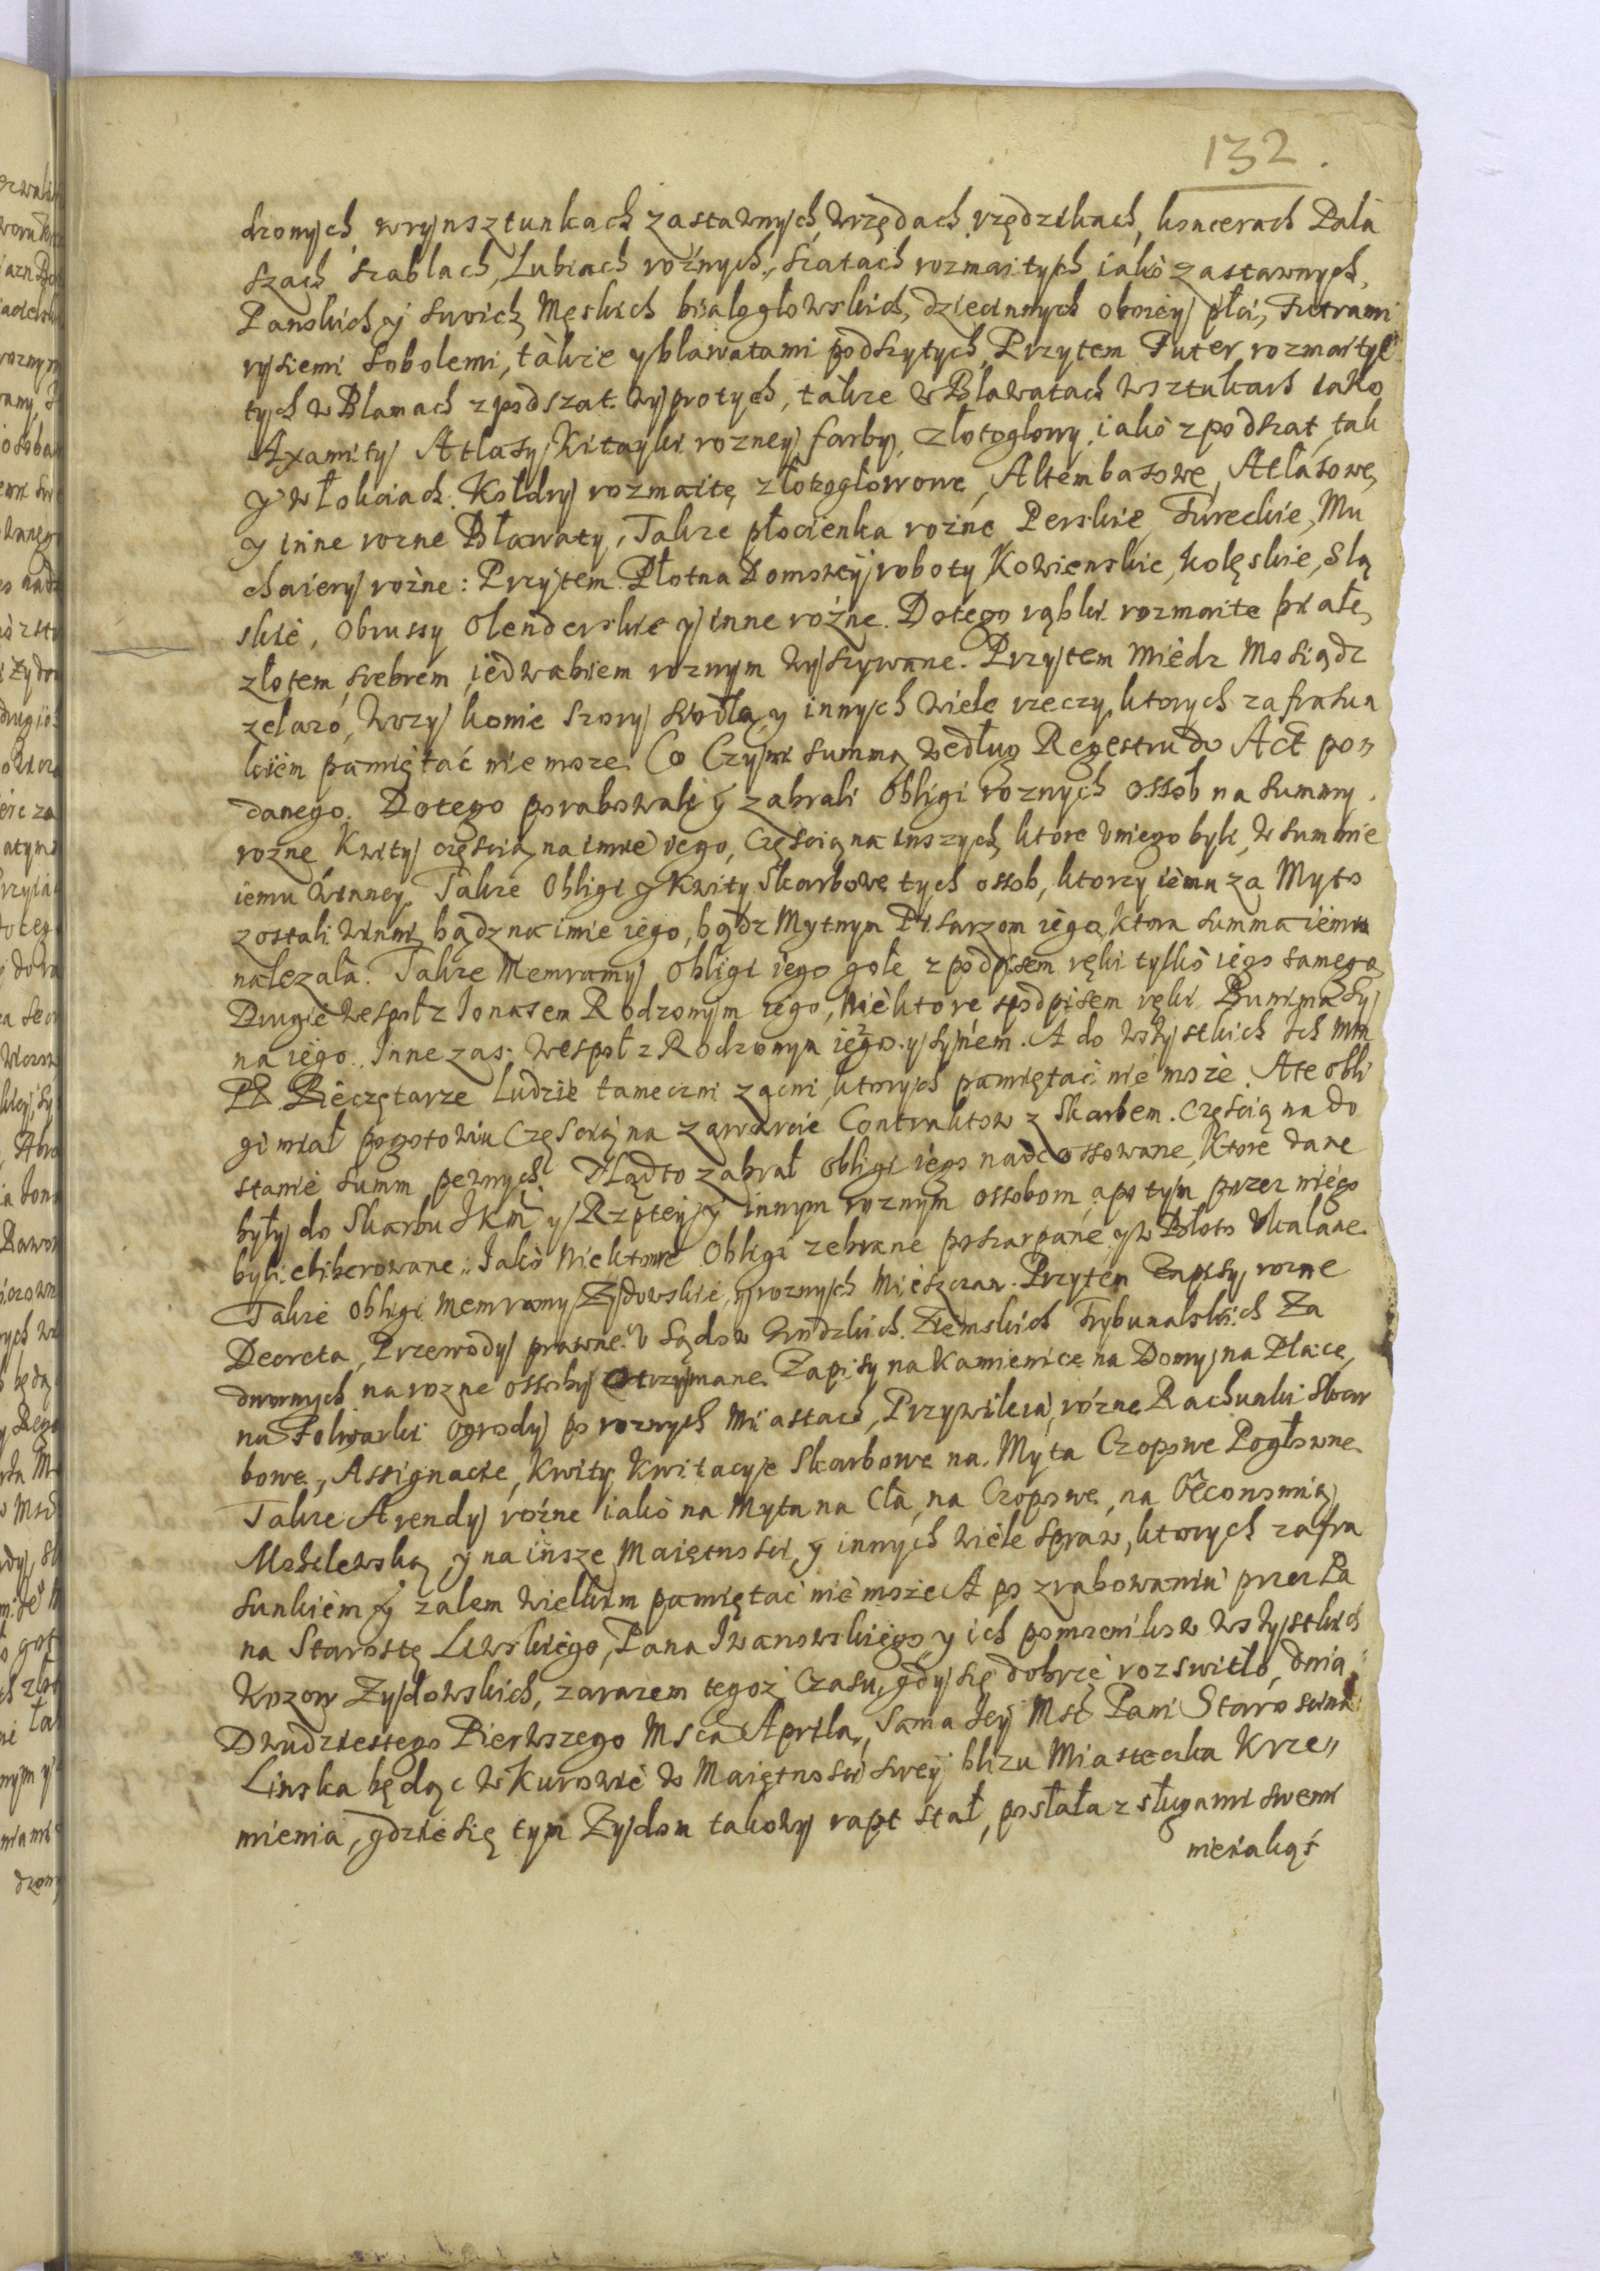 132.
dzonych, w rynsztunkach zastawnych, w rzędach rzędzikach, koncerach Pała
szach szablach, Lubiach rożnych, szatach rozmaitych iako zastawnych,
Panskich y swoich, Męskich białogłowskich, dziecinnych oboiey płci, Futrami
rysiemi sobolemi, także y bławatami podszytych, Przytem Futer rozmaityc
tych w Blamach z pod szat wyprotych, także w Bławatach w sztukach iako
Axamity Atlasy Kitayki rozney farby, złotogłowy iako z pod szat tak
y w łokciach. Kołdry rozmaite złotogłowowe, Altembasowe, Atlasowe,
y inne rozne Bławaty, Także płocienka rożne Perskie Tureckie, Mu
chaiery rożne: Przytem Płotna Domowey roboty Kowienskie, kolęskie, Slą
skie, obrussy olenderskie y inne rożne. Do tego rąbki rozmaite białe,
złotem srebrem iedwabiem roznym wyszywane. Przytem Miedz Mosiądz
zelazo, Wozy konie szory siodła y innych wiele rzeczy, ktorych za frasun
kiem pamiętać nie może. Co Czyni summę według Regestru do Act po
danego. Do tego porabowali y zabrali obligi roznych ossob na summy
rozne Kwity częscią na imie iego, Częscią na inszych, ktore u niego byli, w summie
iemu winney. Także obligi y Kwity Skarbowe tych ossob, ktorzy iemu za Myto
zostali winni, bądz na imie iego, bądz Mytnym Pisarzom iego, ktora summa iemu
nalezała. Także Memramy obligi iego gołe z podpisem ręki tylko iego samego
Drugie wespoł z Ionasem Rodzonym iego, Niektore z podpisem ręki Bunima Sy
na iego. Inne zas wespoł z Rodzonym iego y synem. A do wszystkich ich mm
PP. Pieczętarze Ludzie tameczni zacni, ktorych pamiętać nie może. A te obli
gi miał pogotowiu Częscią na zawarcie Contraktow z Skarbem. Częscią na do
stanie summ pewnych. Nadto zabrał obligi iego nadcossowane, Ktore dane
były do Skarbu JKM y Rzptey y innym roznym ossobom, a po tym przez niego
byli eliberowane. Iako Niektore obligi zebrane poszarpane y w Błoto Wkalane.
Także obligi Memramy Zydowskie, y roznych Mieszczan. Przytem Zapisy rozne
Decreta, Przewody prawne u Sądow Grodzkich. Ziemskich Trybunalskich Za
dwornych na rozne ossoby otrzymane. Zapisy na Kamienice na Domy, na Place,
na Folwarki ogrody po roznych Miastach, Przywileia, rożne Rachunki Skar
bowe, Assignacie, Kwity Kwitacyie Skarbowe na Myta Czopowe Pogłowne.
Także Arendy rożne iako na Myta na Cła, na Czopowe, na Oeconomią
Mohilewską, y na insze Maiętnosci, y innych wiele spraw, ktorych za fra
sunkiem y zalem wielkim pamiętać nie może. A po zrabowaniu przez Pa
na Starostę Liwskiego, Pana Iwanowskiego y ich pomocnikow wszystkich
Wozow Zydowskich, zarazem tegoż Czasu, gdy się dobrze rozswitło, dnia
Dwudziestego Pierwszego Msca Aprila, Sama Iey Msc Pani Starościna
Liwska będąc w Kurowie w Maiętnosci swey blizu Miasteczka Krze„
mienia, gdzie się tym Zydom takowy rapt stał, posłała z sługami swemi
nieiakąś